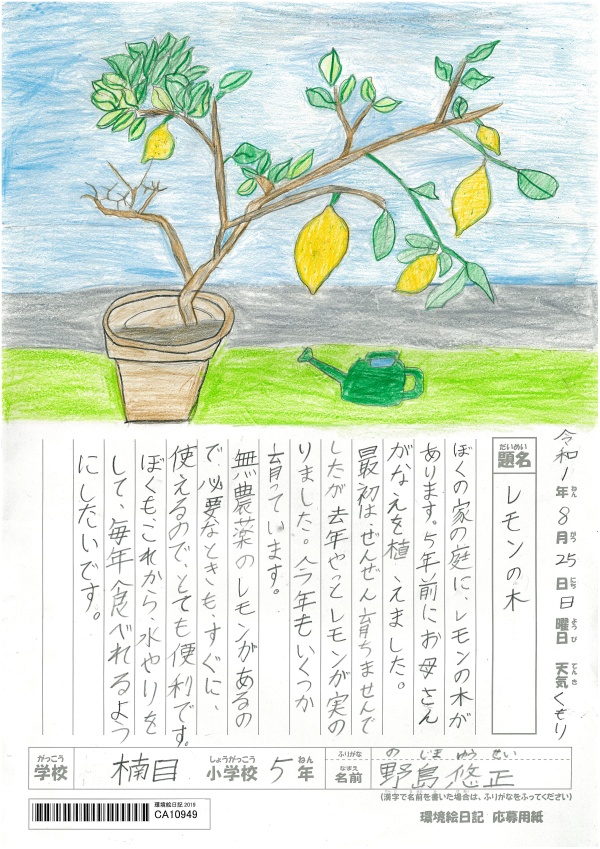 令和1年8月25日日曜日 天気くもり
ねん がつ にち ようび てんき
だいめい
題名 レモンの木
ぼくの家の庭に、レモンの木が
あります。5年前にお母さん
がなえを植えました。
最初は、ぜんぜん育ちませんで
したが去年やっとレモンが実の
りました。今年もいくつか
育っています。
無農薬のレモンがあるの
で、必要なときも、すぐに、
使えるので、とても便利です。
ぼくもこれから、水やりを
して、毎年食べれるよう
にしたいです。
がっこう しょうがっこう ねん ふりがな のじま ゆうせい
学校 楠目 小学校 5年 なまえ 名前 野島 悠正
(漢字で名前を書いた場合は、ふりがなをふってください)
環境絵日記 2019
CA10949
環境絵日記 応募用紙